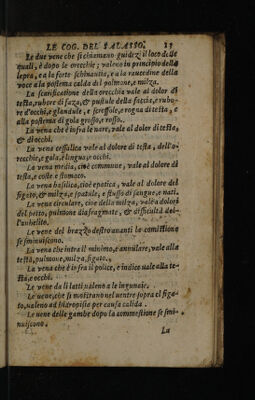 LE COG. DEL SALASSO. 13
Le due vene che si chiamano guidezi il loco delle
quali, è dopo le orecchie; valeno in principio della
lepra, e a la forte schinantia, e a la raucedine della
voce a la postema calda del palmone, e milza.
La scarificatione della orecchia vale al dolor di
testa, rubore di faza, & pustule della faccia, e rubo-
re d'occhi, e glandule, e screffole, e rogna di testa, e
alla postema di gola grosso, e rosso.
La vena che è infra le nare, vale al dolor di testa,
& di occhi.
La vena ceffalica vale al dolore di testa, dell'o-
recchie, e gola, e lingua, e occhi.
La vena media, cioè commune, vale al dolore di
testa, e coste e stomaco.
La vena basilica, cioè epatica, vale al dolore del
figato, & milza, e spatule, e flusso di sangue, e nari.
La vena circulare, cioe della milza, vale a dolori
del petto, pulmone diafragmate, & difficultà del-
l'anhelito.
Le vene del brazzo destro ananti la comistione
se sminuiscono.
La vena che intra il minimo, e annulare, vale alla
testa, pulmone, milza, figato.
La vena che è infra il police, e indice vale alla te-
sta, e occhi.
Le vene da li latti valeno a le inguinaie.
Le vene, che si mostrano nel ventre sopra el figa-
to, valeno ad hidropisia per causa calida.
Le vene delle gambe dapo la commestione se smi-
nuiscono.
La